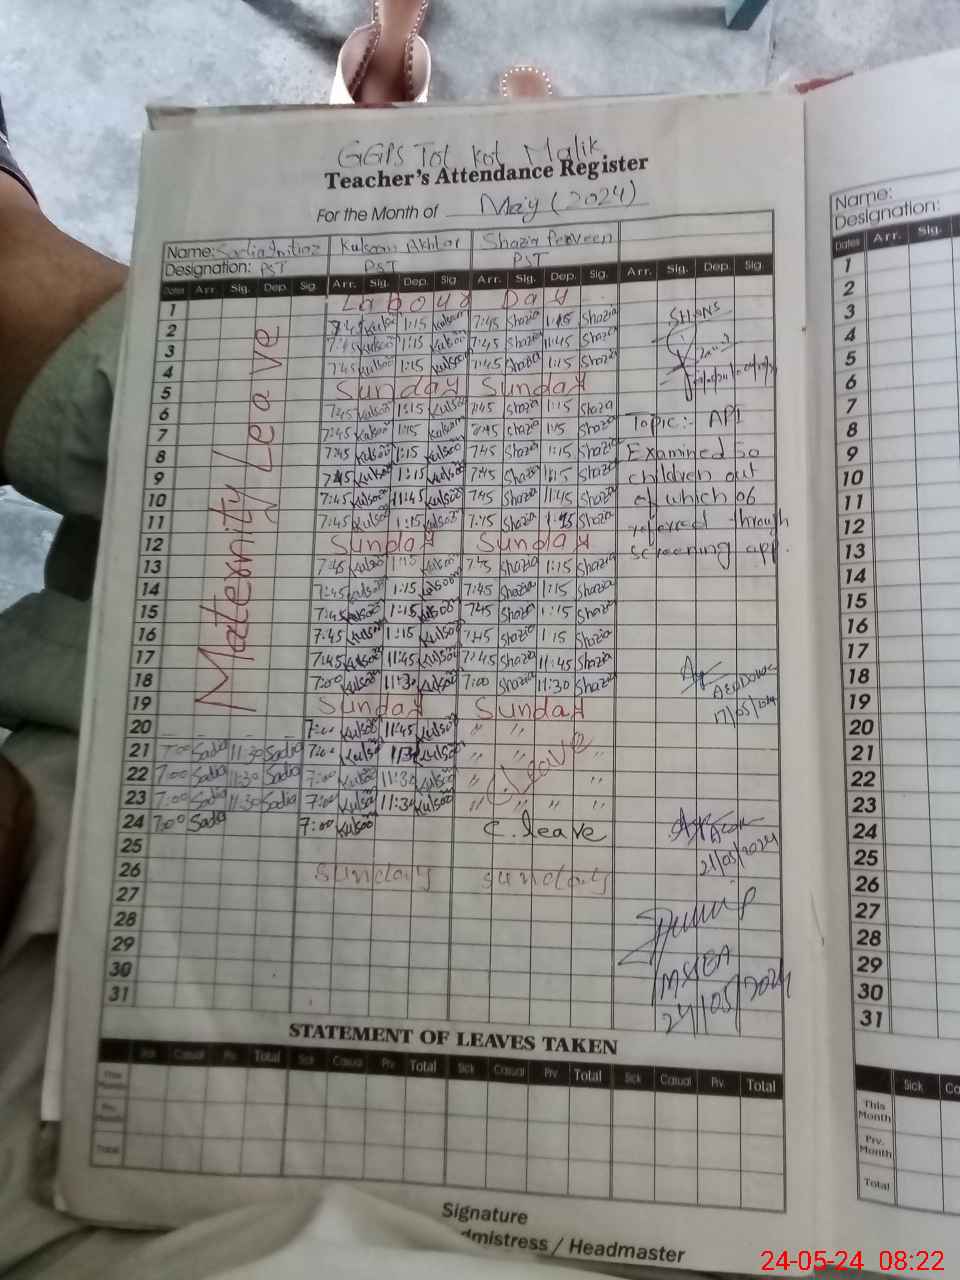 GGPS Tot Kot Malik
Teacher's Attendance Register
For the Month of May (2024)
Name: Sadia Imtiaz Kulsoom Akhtar Shazia Perveen
Designation: PST PST PST
Dates Arr. Sig. Dep. Sig. Arr. Sig. Dep. Sig. Arr. Sig. Dep. Sig. Arr. Sig. Dep. Sig.
Maternity Leave
1 Labour Day
2 7:45 1:15 7:45 Shazia 1:15 Shazia
3 7:45 1:15 7:45 Shazia 11:45 Shazia
4 7:45 1:15 7:45 Shazia 1:15 Shazia
5 Sunday Sunday
6 7:45 1:15 7:45 Shazia 1:15 Shazia
7 7:45 1:15 7:45 Shazia 1:15 Shazia
8 7:45 1:15 7:45 Shazia 1:15 Shazia
9 7:45 1:15 7:45 Shazia 1:15 Shazia
10 7:45 11:45 7:45 Shazia 11:45 Shazia
11 7:45 1:15 7:45 Shazia 1:15 Shazia
12 Sunday Sunday
13 7:45 1:15 7:45 Shazia 1:15 Shazia
14 7:45 1:15 7:45 Shazia 1:15 Shazia
15 7:45 1:15 7:45 Shazia 1:15 Shazia
16 7:45 1:15 7:45 Shazia 1:15 Shazia
17 7:45 11:45 7:45 Shazia 11:45 Shazia
18 7:00 11:30 7:00 Shazia 11:30 Shazia
19 Sunday Sunday
20 7:00 11:45 " "
21 7:00 Sadia 11:30 Sadia 7:00 11:30 " " C/Leave "
22 7:00 Sadia 11:30 Sadia 7:00 11:30 " "
23 7:00 Sadia 11:30 Sadia 7:00 11:30 " " " "
24 7:00 Sadia 7:00 C.leave
25
26 Sunday Sunday
27
28
29
30
31
SH&NS
Topic:- API
Examined 50
children out
of which 06
referred through
screening app.
17/05/2024
21/05/2024
24/05/2024
STATEMENT OF LEAVES TAKEN
Sick Casual Prv. Total Sick Casual Prv. Total Sick Casual Prv. Total Sick Casual Prv. Total
This Month
Prv. Month
Total
Signature
dmistress / Headmaster
Name:
Designation:
Dates Arr. Sig.
1
2
3
4
5
6
7
8
9
10
11
12
13
14
15
16
17
18
19
20
21
22
23
24
25
26
27
28
29
30
31
Sick
This Month
Prv. Month
Total
24-05-24 08:22